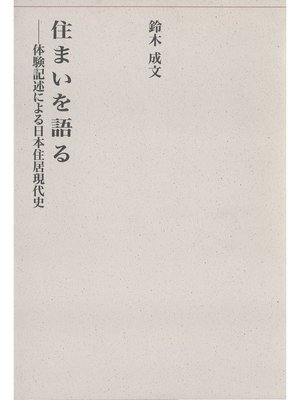 鈴木 成文
住まいを語る
――体験記述による日本住居現代史